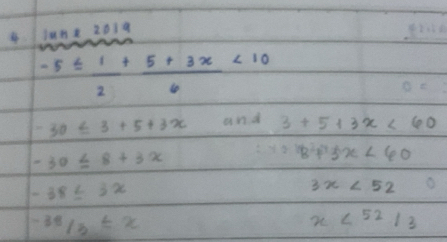 4 June 2019
-5 ≤ 1/2 + (5 + 3x)/6 < 10
-30 ≤ 3 + 5 + 3x and 3 + 5 + 3x < 60
-30 ≤ 8 + 3x 8 + 3x < 60
-38 ≤ 3x 3x < 52
-38/3 ≤ x x < 52/3